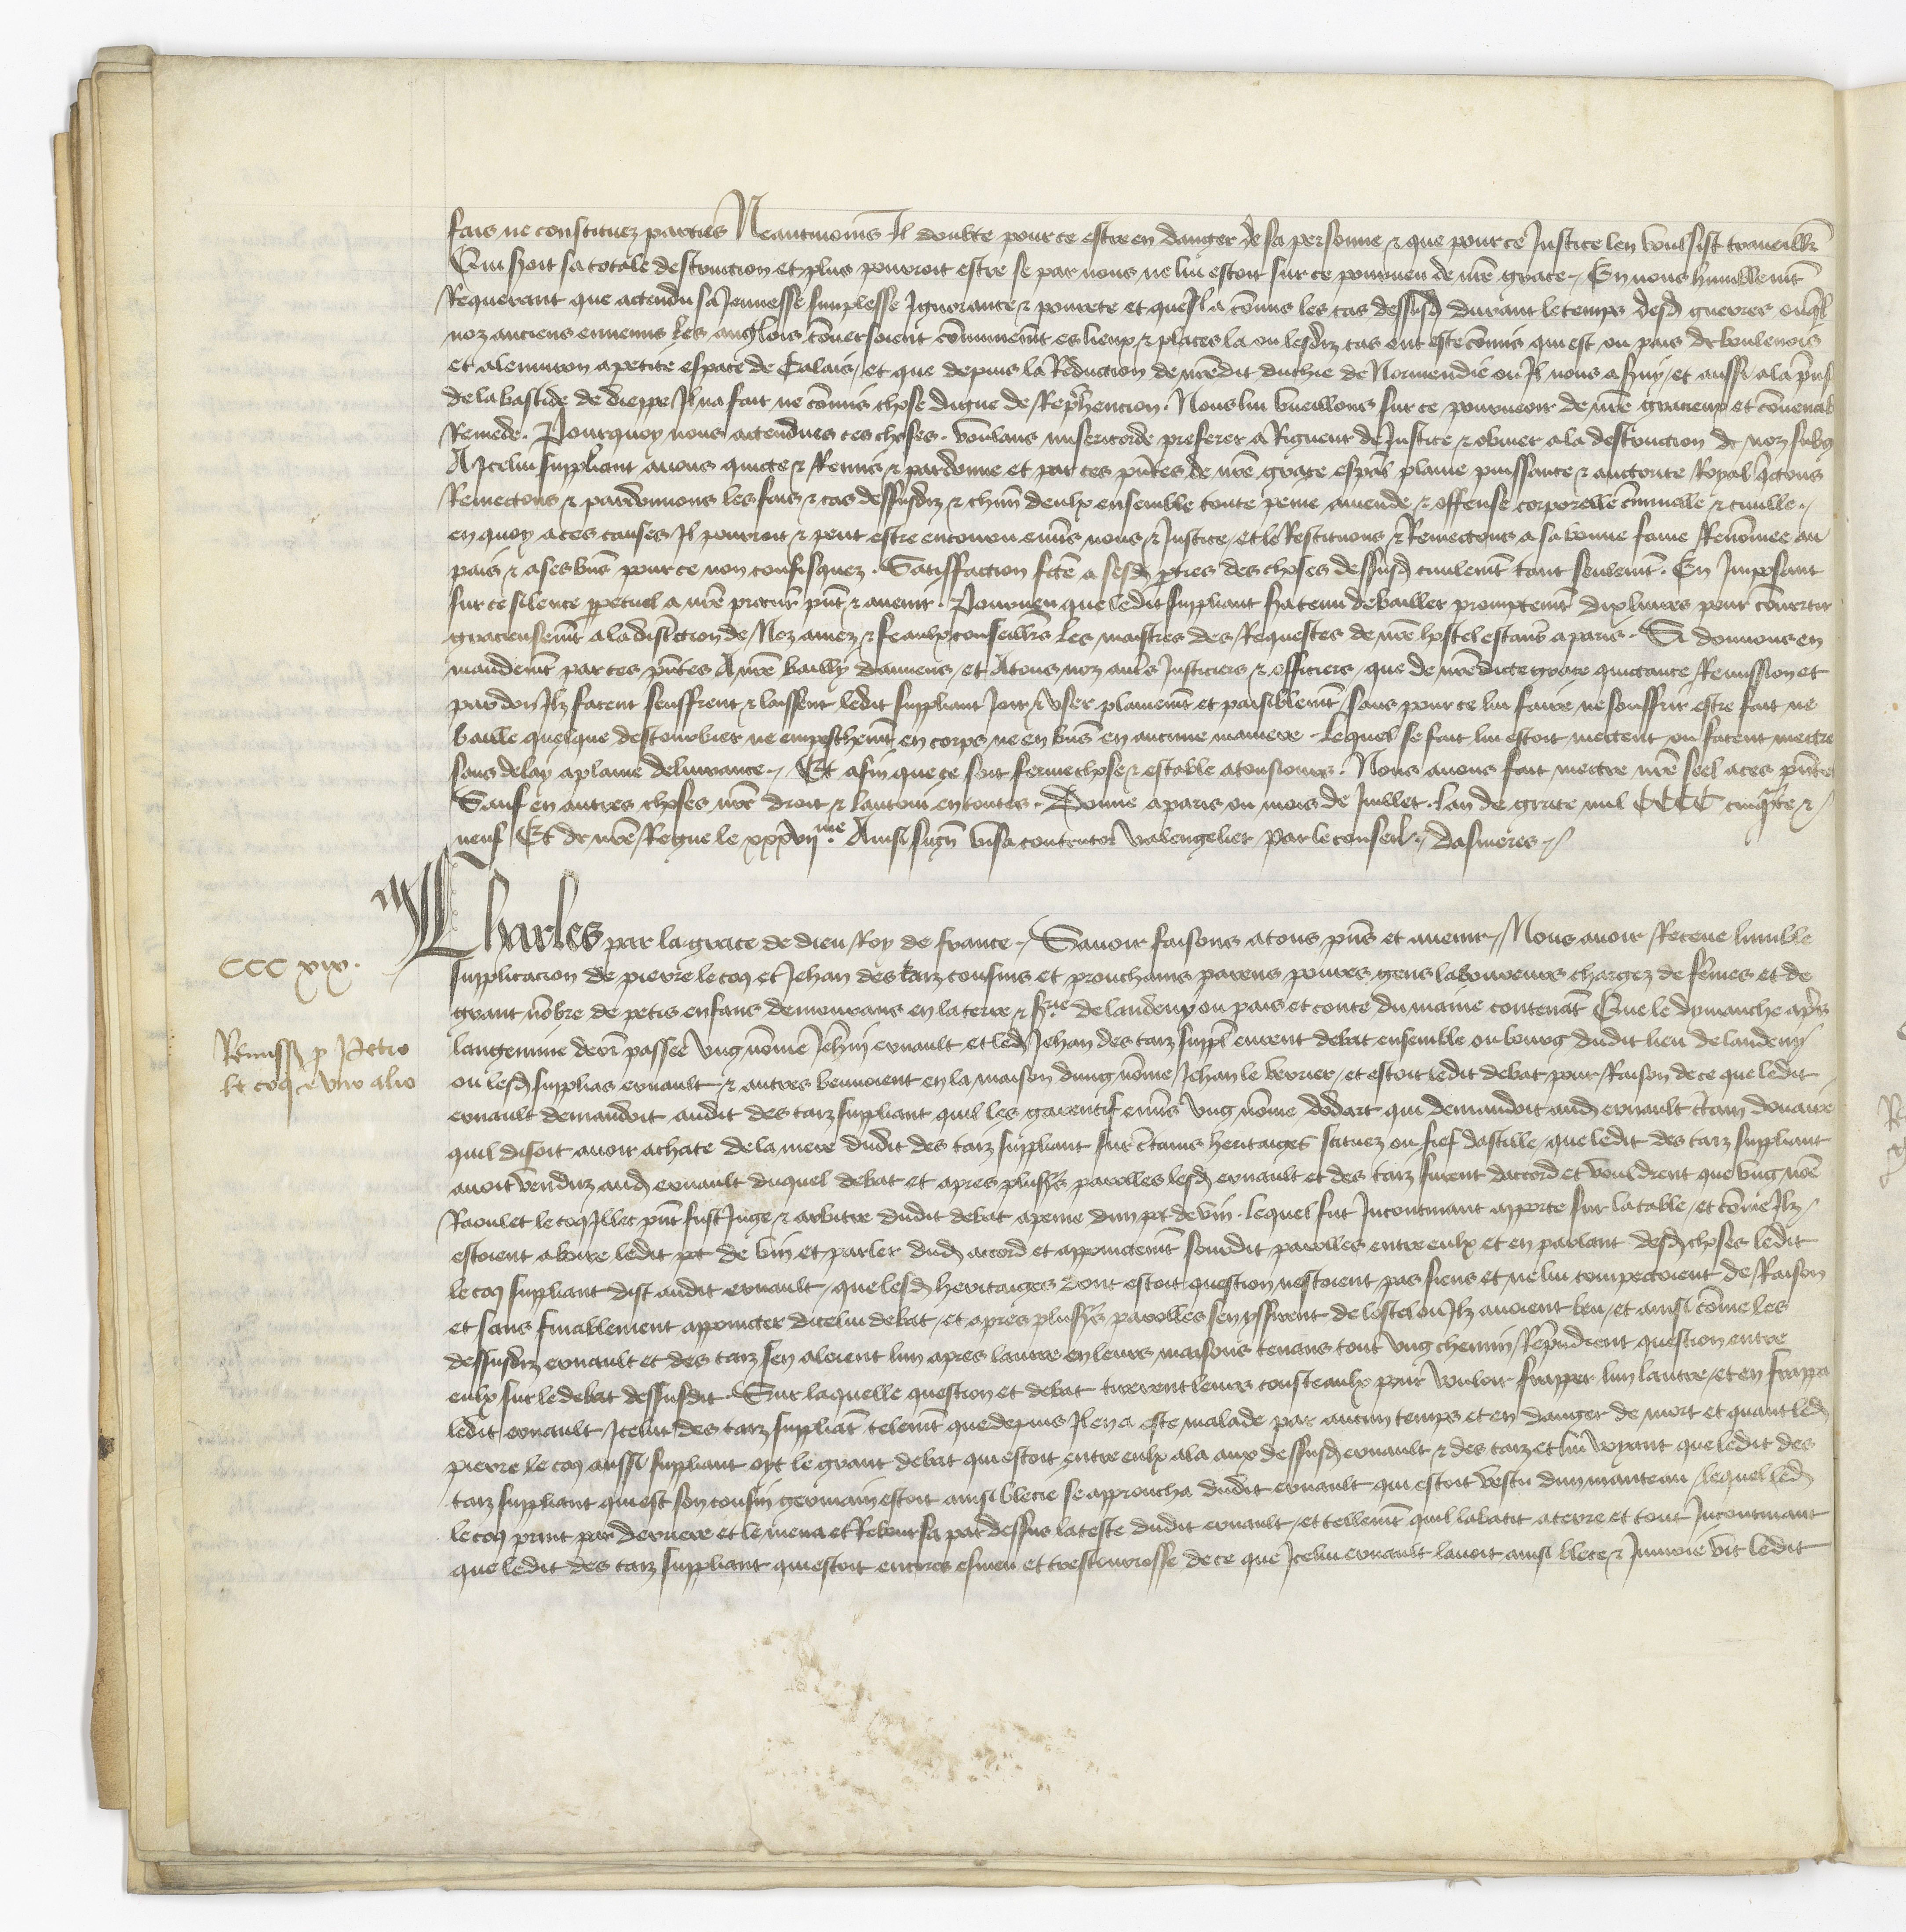 fais ne constituez parties Neantmoins Il doubte pour ce estre en danger de sa personne & que pour ce Justice len voulsist traueillr̄
Qui seroit sa totale destruction et plus pourroit estre se par nous ne lui estoit sur ce pourueu de nr̄e grace. En nous humblemt̄
Requerant que actendu sa Jeunesse simplesse Ignorance & pourete et que Il a cōmis les cas dessusd̄ durant le temps desd̄ guerres ouq̄l
noz anciens ennemis les anglois cōuersoient cōmunemt̄ es lieux & places la ou lesdiz cas ont este cōmis qui est ou pais de boulenois
et alenuiron a petite espace de Calais, et que depuis la Reduction de nr̄edit duchie de Normendie ou Il nous a seruy, et aussi a la prinſ
de la bastide de dieppe Il na fait ne cōmis chose digne de Reprehencion. Nous lui vueillons sur ce pourueoir de nr̄e gracieux et cōuenab
Remede. Pourquoy nous actendues ces choses. voulans misericorde preferer a Rigueur de Justice & obuier a la destruction de noz subgz
A Icelui suppliant auons quicte & Remis & pardonne et par ces pn̄tes de nr̄e grace esp̄al plaine puissance & auctorite Royal q̄ctons
Remectons & pardonnons les fais & cas dessusdiz & chūn deulx ensemble toute peine amende & offense corporelle cr̄iminelle & ciuille.
en quoy a ces causes Il pourroit & peut estre encouru enuers nous & Justice, et le Restituons & Remectons a sa bonne fame Renōmee au
pais & a ses biēs pour ce non confisquez. Satisffaction fc̄te a sesd̄ pties des choses dessusd̄ ciuilemt̄ tant seulemt̄. En Imposant
sur ce silence ppetuel a nr̄e procur̄ pn̄t & auenir. Pourueu que ledit suppliant sera tenu de bailler promptemt̄ dix liures pour cōuertir
gracieusemt̄ a la discrection de Noz amez & feaulx conseillrs̄ les maistres des Requestes de nr̄e hostel estans a paris. Si donnons en
mandemt̄ par ces pn̄tes A nr̄e bailly damiens, et A tous noz autrs̄ Justiciers & officiers, que de nr̄edicte grace quictance Remission et
pardon Ilz facent seuffrent & laissent ledit suppliant Joir & vser plainemt̄ et paisiblemt̄ sans pour ce lui faire ne souffrir estre fait ne
baille quelque destourbier ne empeschemt̄ en corps ne en biēs en aucune maniere. Lequel se fait lui estoit mectent ou facent mectre
sans delay a plaine deliurance. Et afin que ce soit ferme chose & estable a tousiours. Nous auons fait mectre nr̄e seel a ces pn̄tes
Sauf en autres choses nr̄e droit & lautrui en toutes. Donne a paris ou mois de Juillet. lan de grace mil CCCC cinquāte &
neuf Et de nr̄e Regne le xxxvijme. Ainsi signē visa contentor valengelier. Par le conseil. dasnieres.
Charles par la grace de dieu Roy de france. Sauoir faisons a tous pn̄s et auenir, Nous auoir Receue lumble
CCC xix.
supplicacion de pierre le coq et Jehan des tarz cousins et prouchains parens poures gens laboureurs chargez de fēmes et de
grant nōbre de petis enfans demourans en la terre & srie de landeuy ou pais et conte du maine contenāt Que le dymanche aprs̄
Remiss̄ p Petro
le coq & vno alio
langeuine derr̄ passee vng nōme Jehn̄ ernault et led̄ Jehan des tarz suppl̄ eurent debat ensemble ou bourg dudit lieu de landeuy
ou lesd̄ supplias ernault & autres beuuoient en la maison dung nōme Jehan le verrier, et estoit ledit debat pour Raison de ce que ledit
ernault demandoit audit des tarz suppliant quil les garentist enuers vng nōme dodart qui demandoit aud̄ ernault c̄tain douaire
quil disoit auoir achate de la mere dudit des tarz suppliant sur c̄tains heritaiges scituez ou fief dastille, que ledit des tarz suppliant
auoit venduz aud̄ ernault duquel debat et apres plusrs̄ parolles lesd̄ ernault et des tarz furent daccord et vouldrent que vng nōe
Raoulet le coq Illec pn̄t fust Juge & arbitre dudit debat a peine dun pt de vin. lequel fut Incontinant apporte sur la table, et cōme Ilz
estoient a boire ledit pt de vin et parler dud̄ accord et appoinctemt̄ sourdit parolles entre eulx et en parlant desd̄ choses ledit
le coq suppliant dist audit ernault, que lesd̄ heritaiges dont estoit question nestoient pas siens et ne lui competoient de Raison
et sans finablement appoincter dicelui debat, et apres plusrs̄ parolles sen yssirent de lostel ou Ilz auoient beu, et ainsi cōme les
dessusdiz ernault et des tarz sen aloient lun apres lautre en leurs maisons tenans tout vng chemin, Reprindrent question entre
eulx sur ledebat dessusdit. Sur laquelle question et debat tirerent leurs cousteaulx pour vouloir frapper lun lautre, et en frappa
ledit ernault Icelui des tarz suppliāt telemt̄ que depuis Il en a este malade par aucun temps et en danger de mort et quant led̄
pierre le coq aussi suppliant oyt le grant debat qui estoit entre eulx ala aux dessusd̄ ernault & des tarz et lui voyant que ledit des
tarz suppliant qui est son cousin germain estoit ainsi blecie se approucha dudit ernault qui estoit vestu dun manteau, lequel led̄
le coq print par derriere et le mena et Reboursa par dessus la teste dudit ernault, et tellemt̄ quil labatit a terre et tout Incontinant
que ledit des tarz suppliant qui estoit encores esmeu et trescourrosse de ce que Icelui ernault lauoit ainsi blece & Iniurie vit ledit